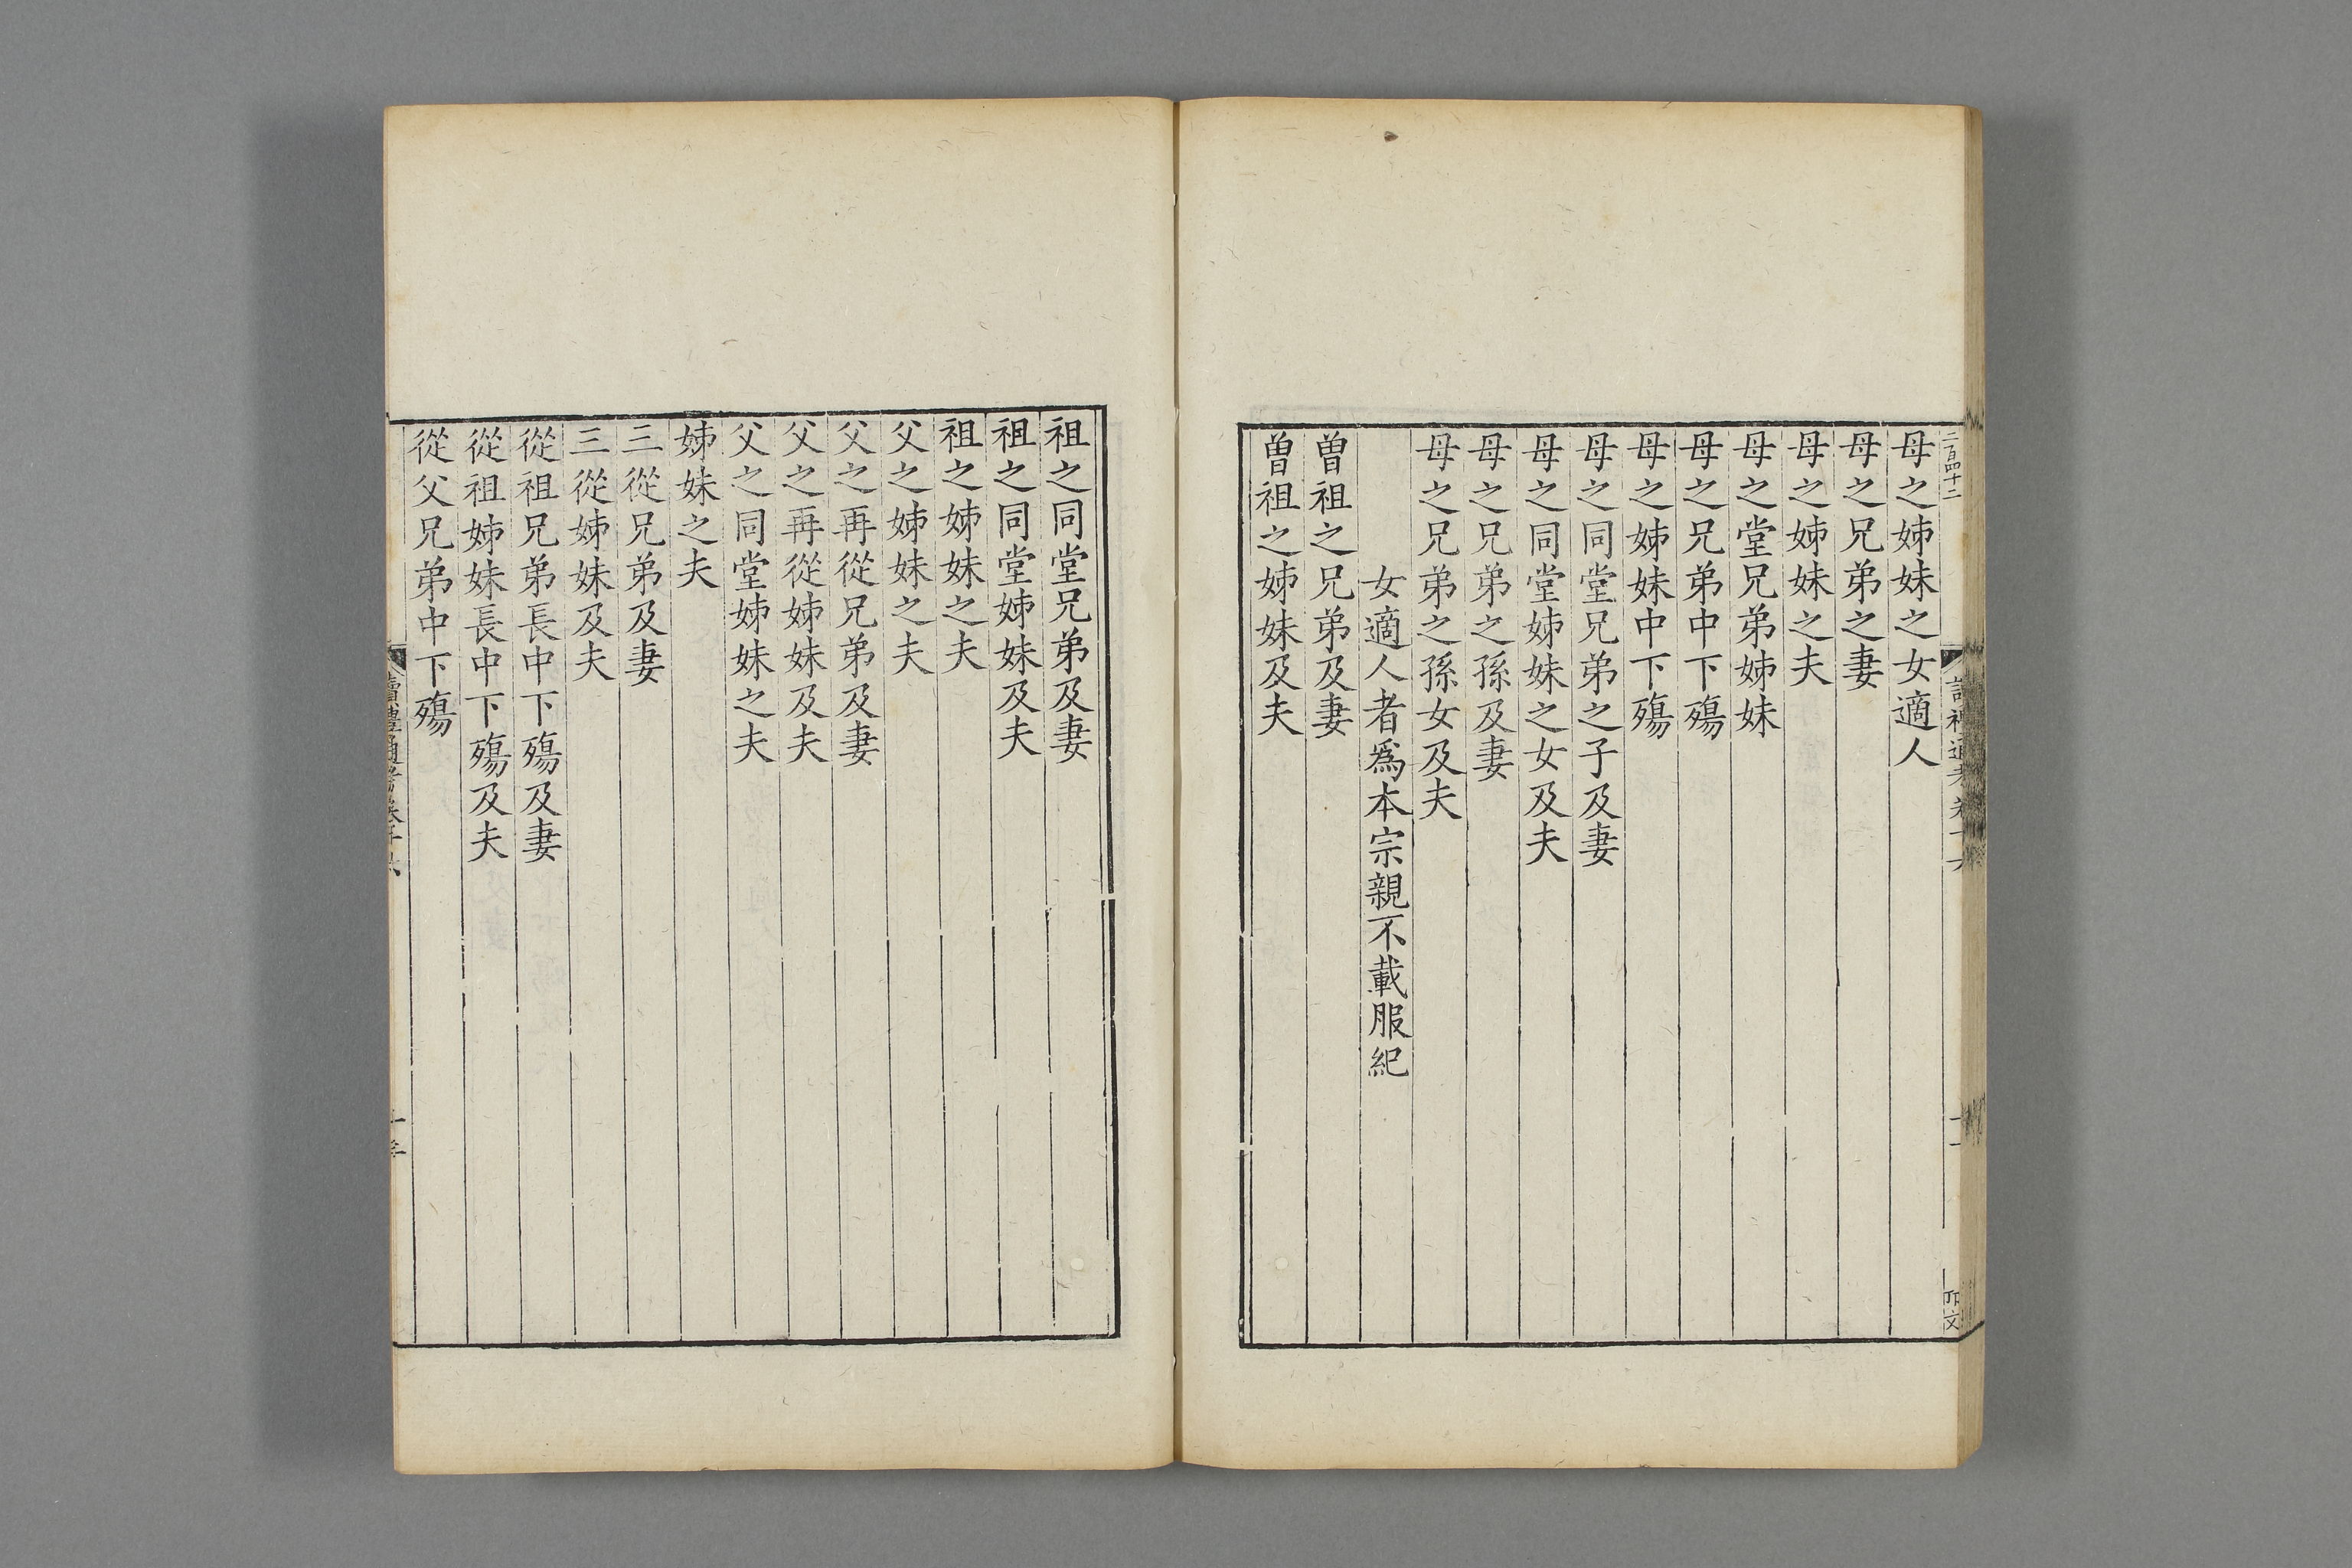 母之姊妹之女適人
母之兄弟之妻
母之姊妹之夫
母之堂兄弟姊妹
母之兄弟中下殤
母之姊妹中下殤
母之同堂兄弟之子及妻
母之同堂姊妹之女及夫
母之兄弟之孫及妻
母之兄弟之孫女及夫
女適人者爲本宗親不載服紀
曽祖之兄弟及妻
曽祖之姊妹及夫
祖之同堂兄弟及妻
祖之同堂姊妹及夫
祖之姊妹之夫
父之姊妹之夫
父之再從兄弟及妻
父之再從姊妹及夫
父之同堂姊妹之夫
姊妹之夫
三從兄弟及妻
三從姊妹及夫
從祖兄弟長中下殤及妻
從祖姊妹長中下殤及夫
從父兄弟中下殤
讀禮通考卷十六